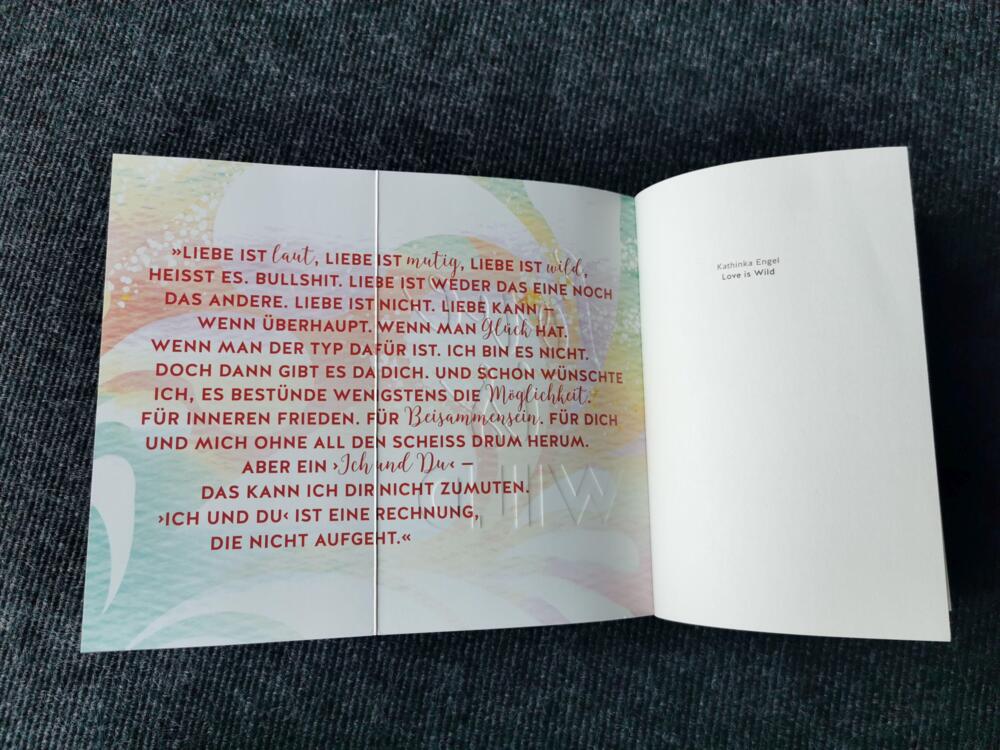 »LIEBE IST laut, LIEBE IST mutig, LIEBE IST wild,
HEISST ES. BULLSHIT. LIEBE IST WEDER DAS EINE NOCH
DAS ANDERE. LIEBE IST NICHT. LIEBE KANN –
WENN ÜBERHAUPT. WENN MAN Glück HAT.
WENN MAN DER TYP DAFÜR IST. ICH BIN ES NICHT.
DOCH DANN GIBT ES DA DICH. UND SCHON WÜNSCHTE
ICH, ES BESTÜNDE WENIGSTENS DIE Möglichkeit.
FÜR INNEREN FRIEDEN. FÜR Beisammensein. FÜR DICH
UND MICH OHNE ALL DEN SCHEISS DRUM HERUM.
ABER EIN ›Ich und Du‹ –
DAS KANN ICH DIR NICHT ZUMUTEN.
›ICH UND DU‹ IST EINE RECHNUNG,
DIE NICHT AUFGEHT.«
WILD
Kathinka Engel
Love is Wild